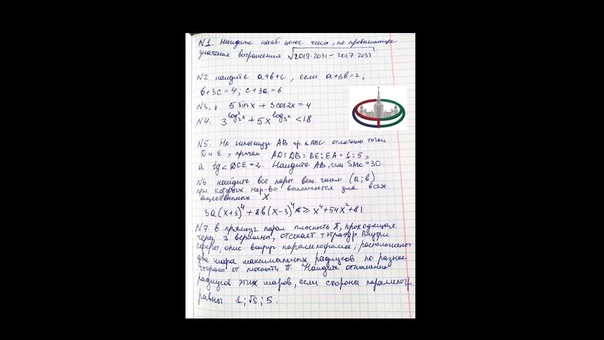 N1. Найдите наиб. целое число, не превосходящее
значения выражения √2019·2031 − 2017·2033
N2 найдите a+b+c, если a+3b=2,
b+3c=4; c+3a=6
N3. 5 sin x + 3cos2x = 4
N4. 3^log₃²x + 5x^log₃x < 18
N5. На гипотенузе AB пр. △ABC отмечены точки
D и E, причем AD:DB=BE:EA=1:5,
а tg∠DCE=2. Найдите AB, если S△ABC=30.
N6 найдите все пары вещ. чисел (a;b)
при которых нер-во выполняется для всех
вещественных X.
3a(x+3)⁴ + 8b(x−3)⁴ ≥ x⁴+54x²+81
N7. В прямоуг. парал. плоскость П, проходящая
через 3 вершины, отсекает тетраэдр. Внутри
сферы, опис. вокруг параллелепипеда, расположены
два шара максимальных радиусов по разные
стороны от плоскости П. Найдите отношение
радиусов этих шаров, если стороны параллелеп.
равны 1; √3; 5.